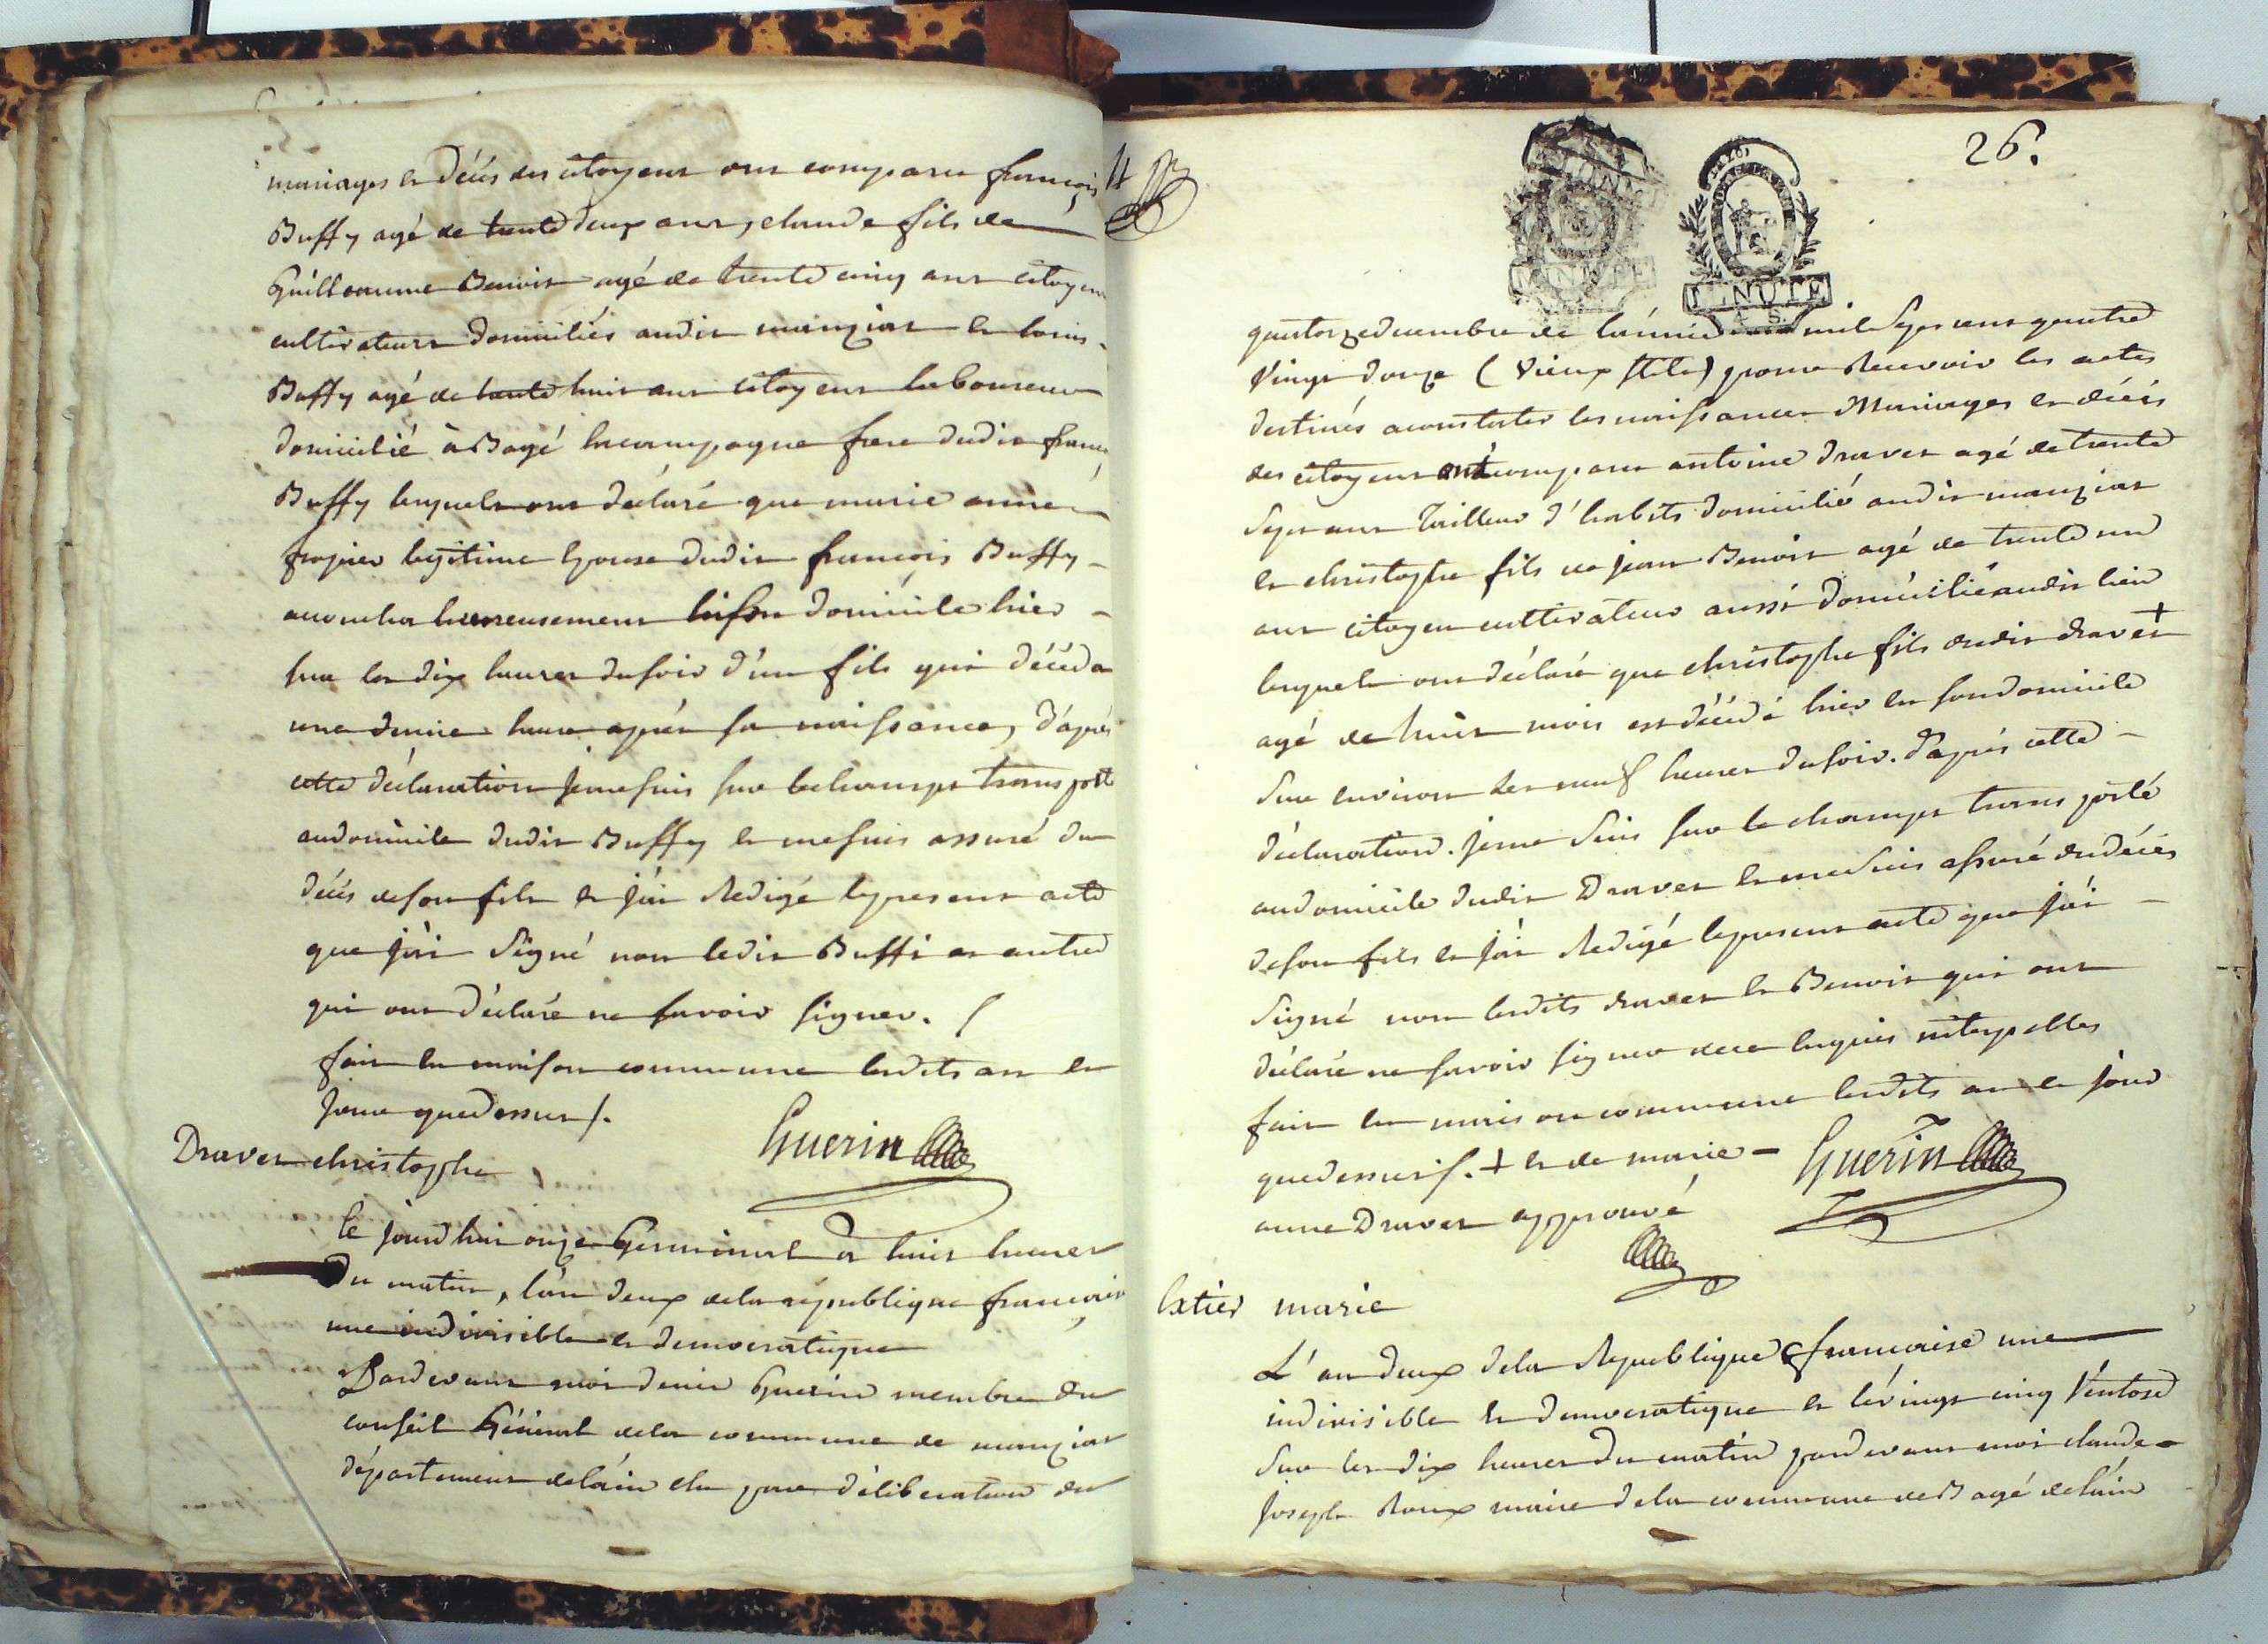 mariages et décès des citoyens ont comparu françois
Buffy agé de trente deux ans, claude fils de
Guillaume Benoit agé de trente cinq ans citoyens
cultivateurs domiciliés audit manziat et louis
Buffy agé de trente huit ans citoyens laboureur
domicilié à Bagé lacampagne frere dudit françois
Buffy lesquels ont déclaré que marie anne
legitime Epouse dudit françois Buffy
accoucha heureusement en son domicile hier
sur les dix heures du soir d'un fils qui décéda
une demie heure après sa naissance, d'après
cette déclaration je me suis sur le champs transporté
au domicile dudit Buffy et me suis assuré du
décès de son fils et j'ai Redigé le present acte
que j'ai Signé non ledit Buffi et autres
qui ont déclaré ne savoir signer. /
fait en maison commune lesdits an et
jour que dessus /.
Guerin
Dravet christophe
Ce jourd'hui onze Germinal à huit heures
du matin, l'an deux de la république françoise
une indivisible et democratique
Pardevant moi denis Guerin membre du
conseil Général de la commune de manziat
département de l'ain elu par déliberation du
26.
MINUTE
MINUTE
quatorze decembre de l'année mil Sept cent quatre
Vingt douze (Vieux stile) pour Recevoir les actes
destinés a constater les naissances Mariages et décès
des citoyens ont comparu antoine Dravet agé de trente
Sept ans Tailleur d'habits domicilié audit manziat
et christophe fils de jean Benoit agé de trente un
ans citoyen cultivateur aussi domicilié audit lieu
lesquels ont déclaré que christophe fils dudit dravet +
agé de huit mois est décédé hier en son domicile
Sur environ les neuf heures du soir. d'après cette
déclaration. je me Suis sur le champs transporté
au domicile dudit Dravet et me Suis assuré du décès
de son fils et j'ai Redigé le present acte que j'ai
Signé non lesdits dravet et Benoit qui ont
déclaré ne savoir signer de ce enquis interpellés
fait en maison commune lesdits an et jour
que dessus /. + et de marie
anne Dravet approuvé
Guerin
marie
L'an deux de la Republique francaise une
indivisible et democratique et le vingt cinq Ventose
Sur les dix heures du matin pardevant moi claude
joseph Roux maire de la commune de Bagé de l'ain